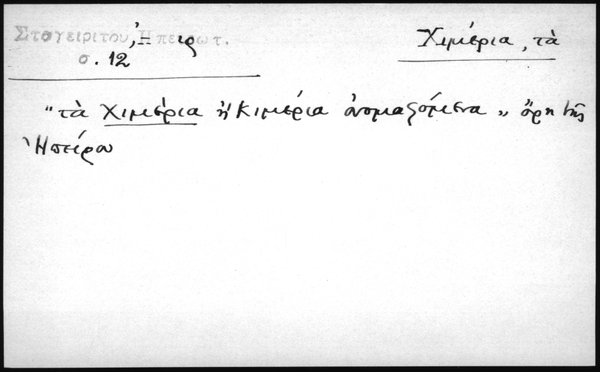 Σταγειρίτου, Ἠπειρωτ.
σ. 12
Χιμέρια, τὰ
"τὰ Χιμέρια ἢ Κιμέρια ὀνομαζόμενα" ὄρη τῆς
Ἠπείρου